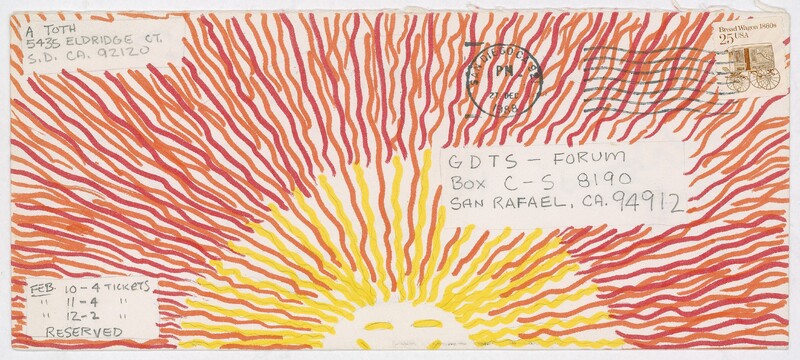 A TOTH
5435 ELDRIDGE CT.
S.D. CA. 92120
SAN DIEGO CA
PM
27 DEC
1988
Bread Wagon 1880s
25 USA
GDTS - FORUM
BOX C-S 8190
SAN RAFAEL, CA. 94912
FEB. 10-4 TICKETS
" 11-4 "
" 12-2 "
RESERVED